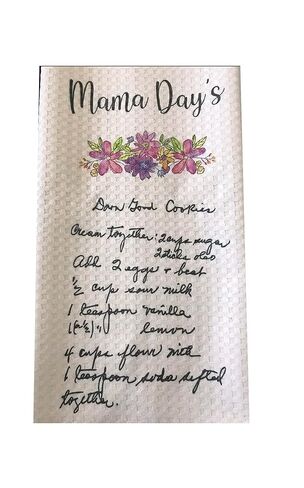 Mama Day's
Darn Good Cookies
Cream together: 2 cups sugar
2 sticks oleo
Add 2 eggs + beat
½ cup sour milk
1 teaspoon vanilla
1 (or ½) " lemon
4 cups flour with
1 teaspoon soda sifted
together.